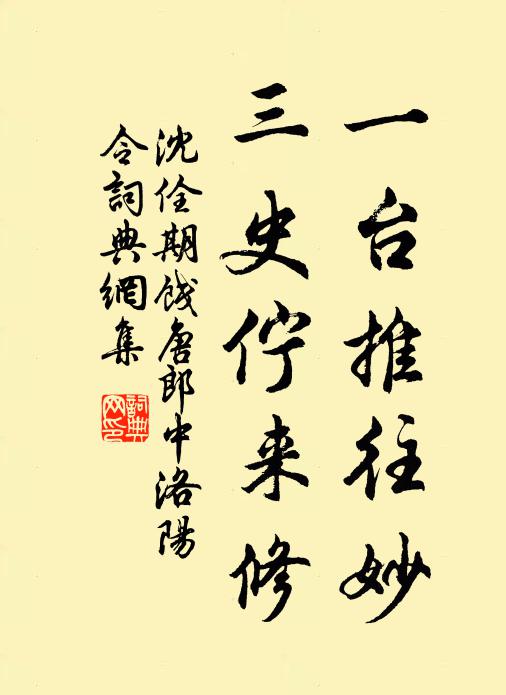 一台推往妙
三史佇来修
沈佺期餞唐郎中洛陽
令詞典網集
詞典
网印